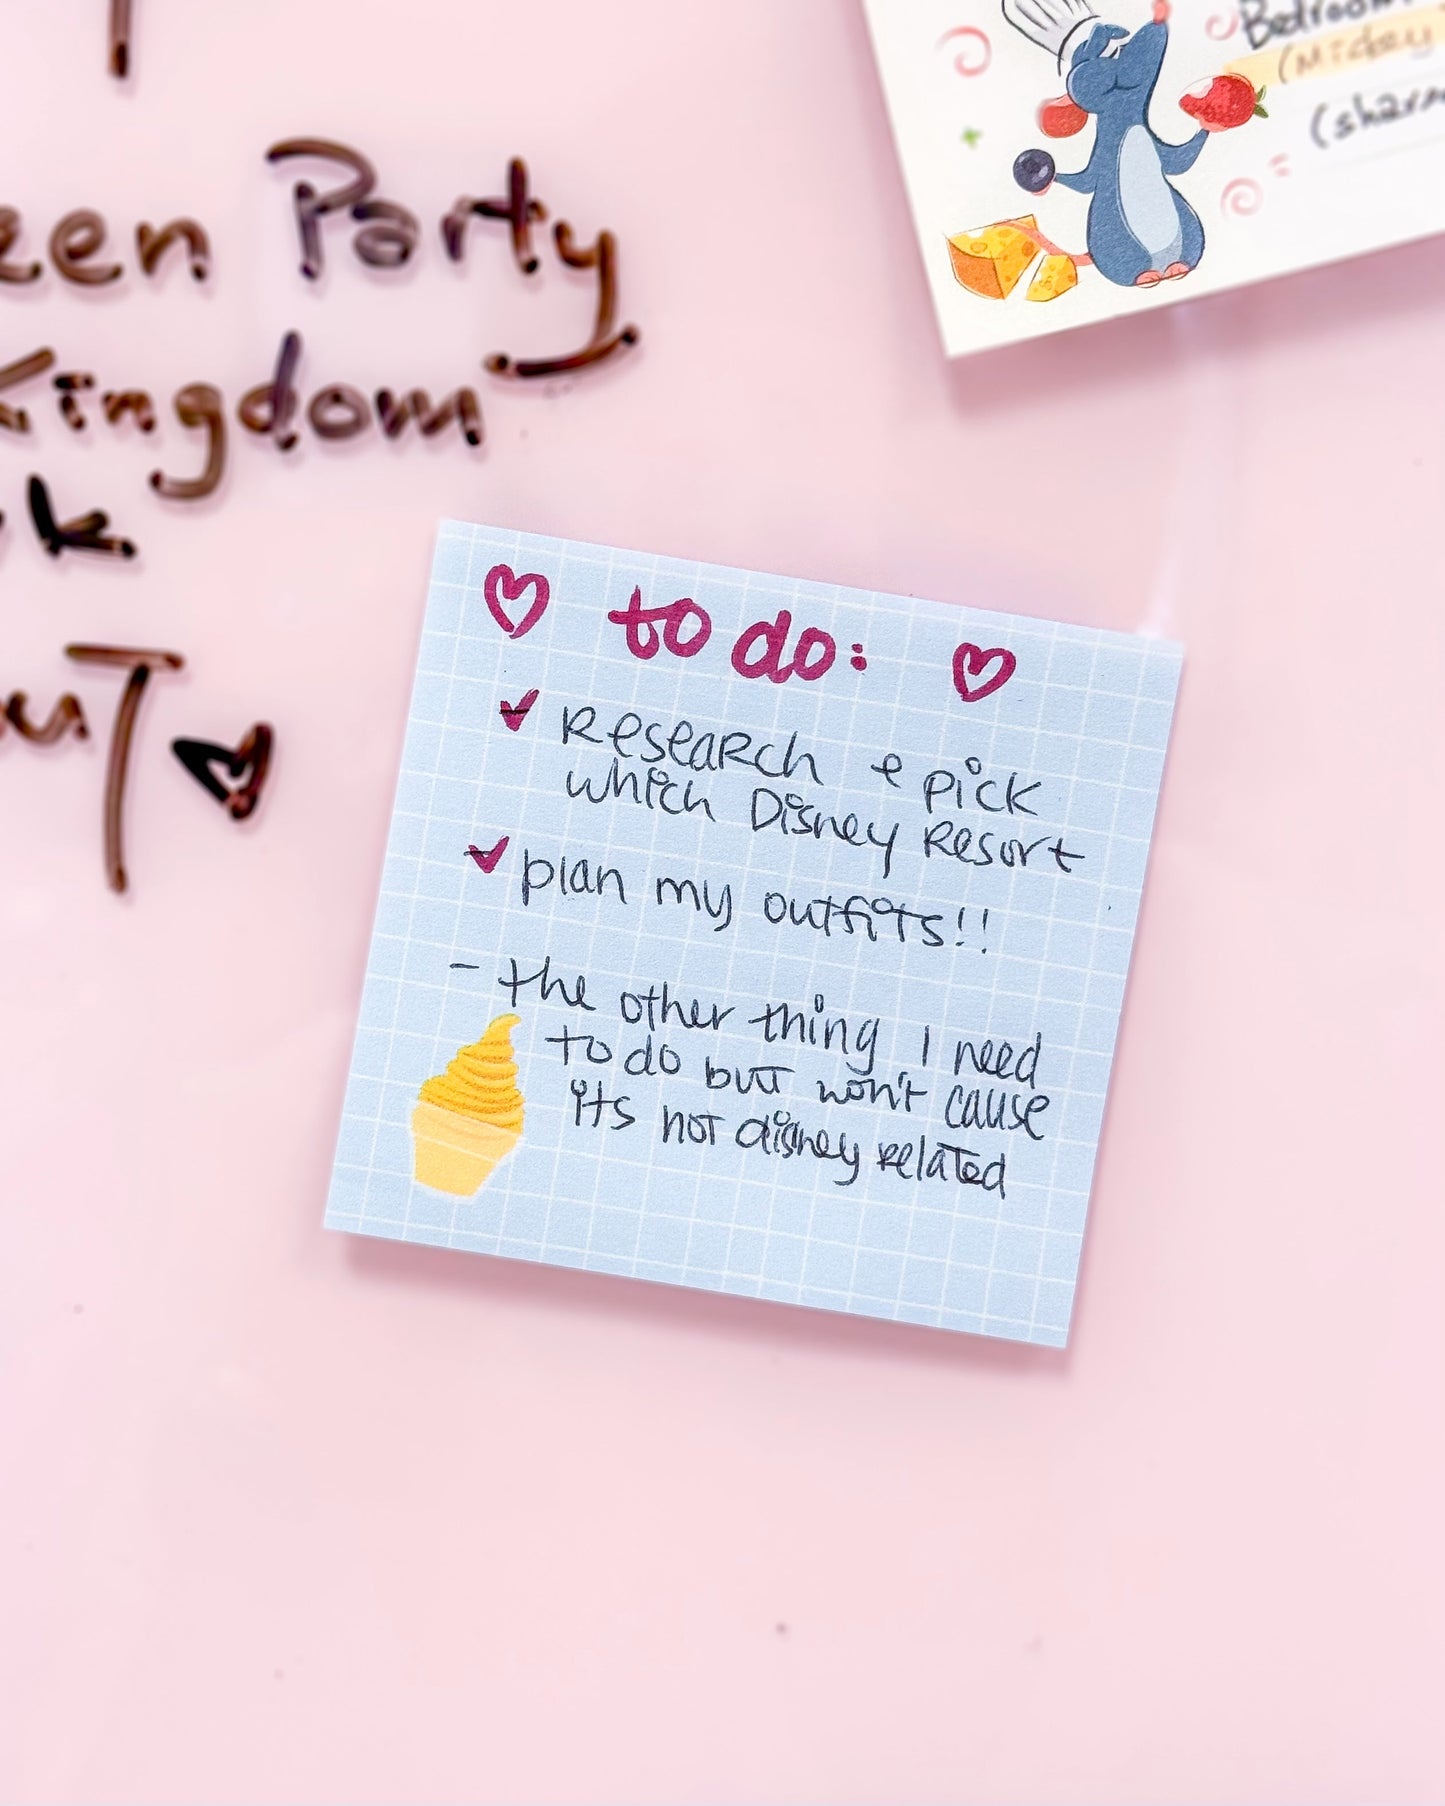 Party
Kingdom
Bedroom
(Mickey
to do:
Research & pick
which Disney Resort
plan my outfits!!
- the other thing I need
to do but won't cause
its not disney related